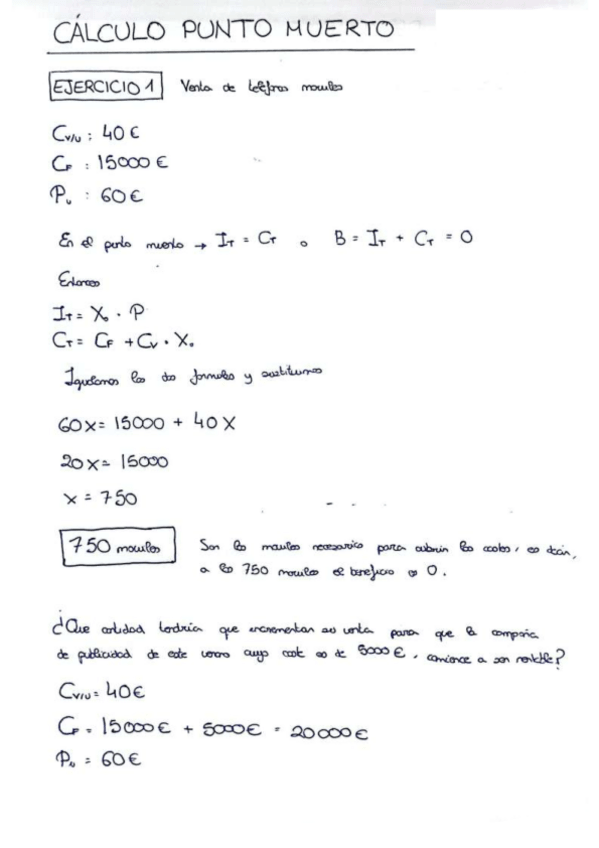 CÁLCULO PUNTO MUERTO
EJERCICIO 1 Venta de teléfonos moviles
Cv/u : 40 €
CF : 15000 €
Pu : 60 €
En el punto muerto → IT = CT o B = IT + CT = 0
Entonces
IT = X₀ · P
CT = CF + CV · X₀
Igualamos las dos formulas y sustituimos
60x = 15000 + 40x
20x = 15000
x = 750
750 moviles Son los moviles necesarios para cubrir los costes, es decir,
a los 750 moviles el beneficio es 0.
¿Que cantidad tendria que incrementar su venta para que la compañia
de publicidad de este verano cuyo coste es de 5000 €, comience a ser rentable?
Cv/u = 40 €
CF = 15000 € + 5000 € = 20000 €
Pu = 60 €